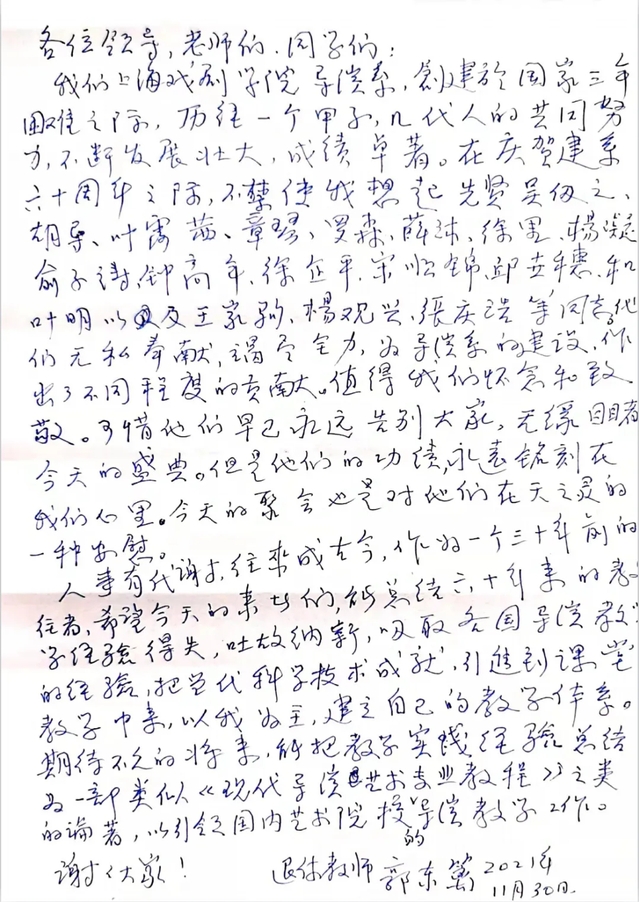 各位领导,老师们,同学们:
我们上海戏剧学院导演系,創建於国家三年
困难之际,历经一个甲子,几代人的共同努
力,不断发展壮大,成绩卓著。在庆贺建系
六十周年之际,不禁使我想起先贤吴仞之、
胡导、叶露茜、章琴、罗森、薛沐、徐里、杨凝
俞子涛、钟高年、徐企平、宋顺锦、邱世穗、和
叶明以及王家驹、杨观兴、张庆浩等同志,他
们无私奉献,竭尽全力,为导演系的建设,作
出了不同程度的贡献。值得我们怀念和致
敬。可惜他们早已永远告别大家,无缘目睹
今天的盛典。但是他们的功绩,永远铭刻在
我们心里。今天的聚会也是对他们在天之灵的
一种安慰。
人事有代谢,往来成古今,作为一个三十年前的
往者,希望今天的来者们,能总结六十年来的教
学经验得失,吐故纳新,吸取各国导演教学
的经验,把当代科学技术成就,引進到课堂
教学中来,以我为主,建立自己的教学体系。
期待不久的将来,能把教学实践经验总结
为一部类似《现代导演艺术专业教程》之类
的論著,以引领国内艺术院校的导演教学工作。
谢谢大家! 退休教师 郭东篱 2021年
11月30日.